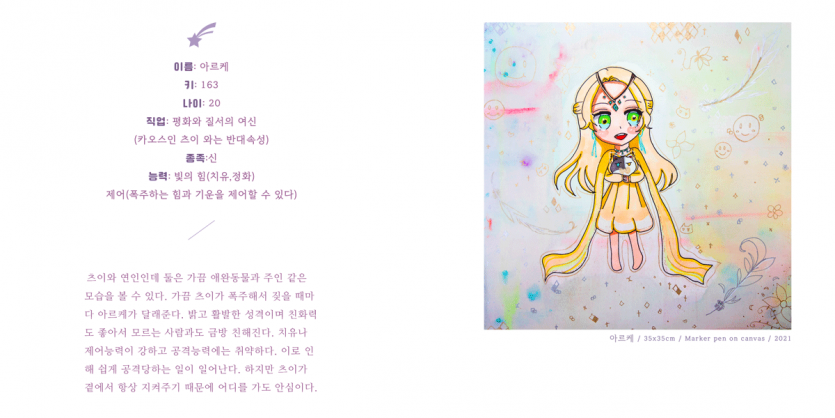 이름: 아르케
키: 163
나이: 20
직업: 평화와 질서의 여신
(카오스인 츠이 와는 반대속성)
종족:신
능력: 빛의 힘(치유,정화)
제어(폭주하는 힘과 기운을 제어할 수 있다)
츠이와 연인인데 둘은 가끔 애완동물과 주인 같은
모습을 볼 수 있다. 가끔 츠이가 폭주해서 짖을 때마
다 아르케가 달래준다. 밝고 활발한 성격이며 친화력
도 좋아서 모르는 사람과도 금방 친해진다. 치유나
제어능력이 강하고 공격능력에는 취약하다. 이로 인
해 쉽게 공격당하는 일이 일어난다. 하지만 츠이가
곁에서 항상 지켜주기 때문에 어디를 가도 안심이다.
아르케 / 35x35cm / Marker pen on canvas / 2021